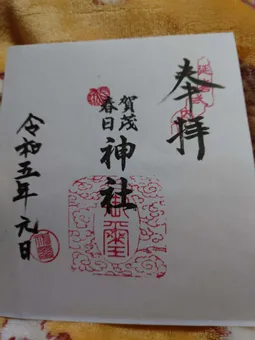 奉拝
賀茂
春日
神社
令和五年 元日